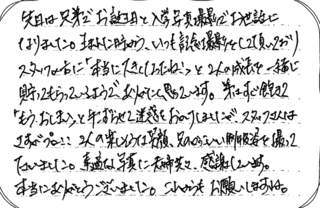 先日は兄弟でお誕生日と入学写真撮影でお世話に
なりました。まだ小さい時から、いつも記念撮影をして頂いており
スタッフの方に「本当に大きくなったね」と2人の成長を一緒に
見守ってもらっているようでありがたいと思っています。弟はすぐ飽きて
「もうおしまい」と手こずらせご迷惑をおかけしましたが、スタッフさんは
さすがプロ!! 2人の楽しそうな笑顔、兄のかっこいい制服姿を撮って
下さいました。素適な写真に夫婦共々、感謝しています。
本当にありがとうございました。これからもお願いしますね。